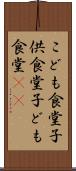 こども食堂子
供食堂子ども
食堂